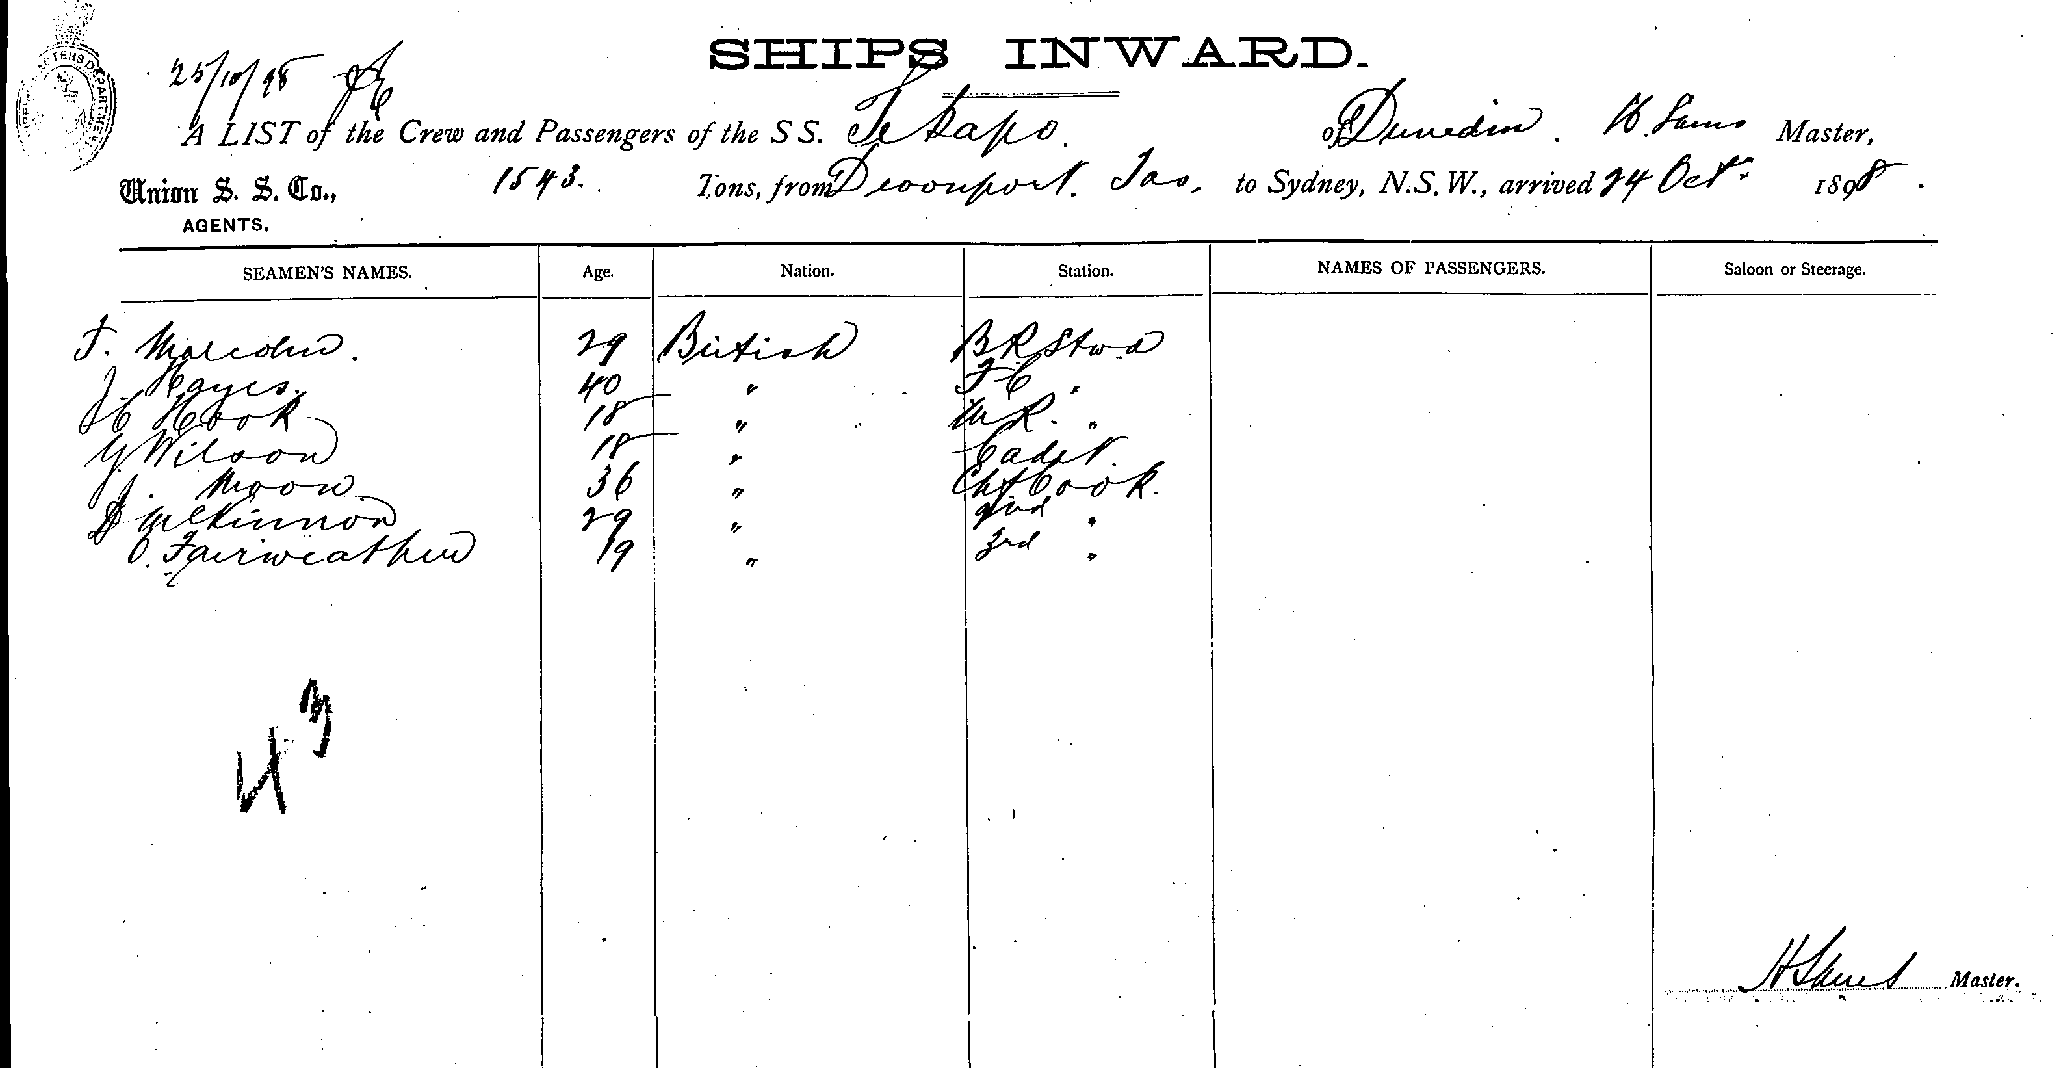 SHIPS INWARD.
25/10/98
A LIST of the Crew and Passengers of the S S. Tekapo. of Dunedin. H. Sams Master,
Union S. S. Co., 1543. Tons, from Devonport. Tas, to Sydney, N.S.W., arrived 24 Oct. 1898.
AGENTS.
SEAMEN'S NAMES. Age. Nation. Station. NAMES OF PASSENGERS. Saloon or Steerage.
F. Malcolm. 29 British B R Stwd
J. Hayes. 40 " F C "
H Hook 18 " M R. "
Y Wilson 18 " Cadet.
J. Moon. 36 " Chf Cook.
D McKinnon 29 " 2nd "
O. Fairweather 19 " 3rd "
43
H Sams Master.